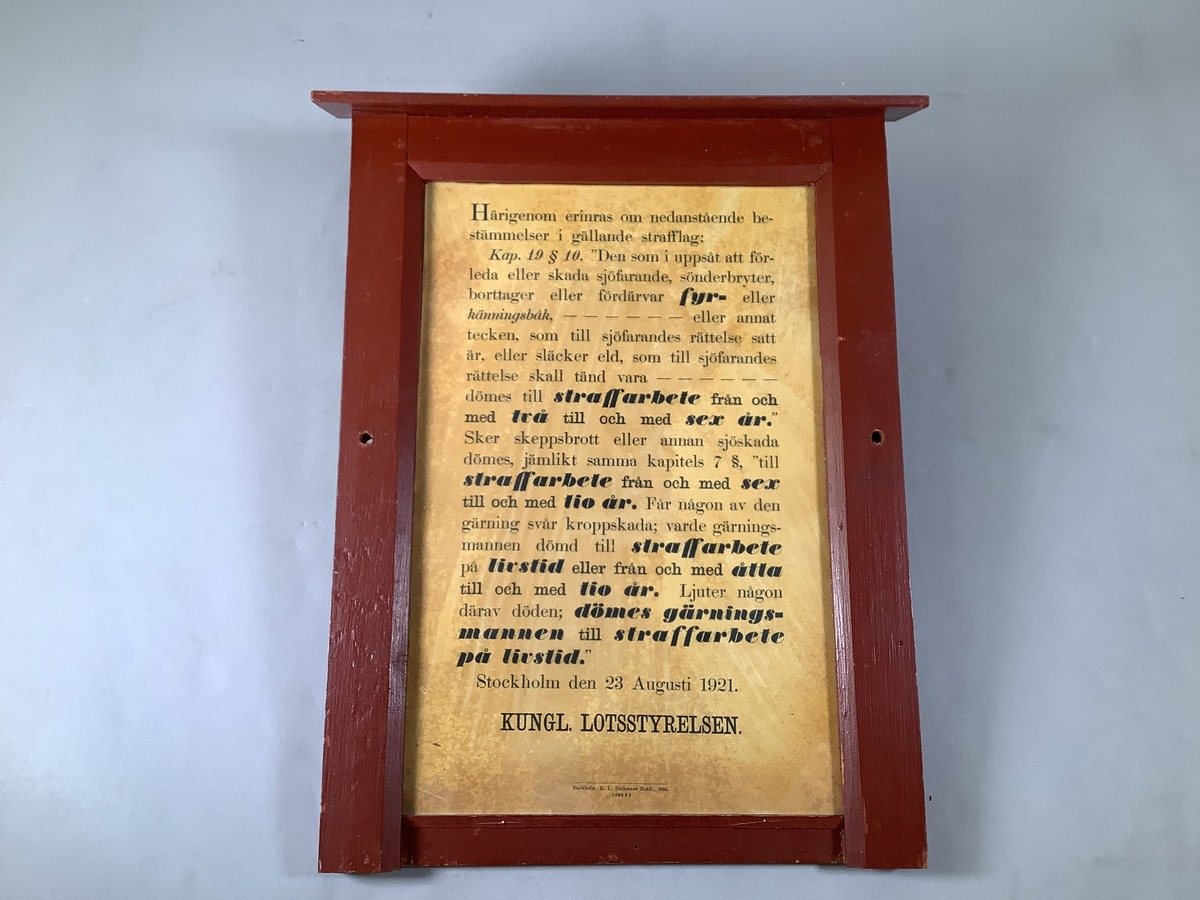 Härigenom erinras om nedanstående be-
stämmelser i gällande strafflag:
Kap. 19 § 10. "Den som i uppsåt att för-
leda eller skada sjöfarande, sönderbryter,
borttager eller fördärvar fyr- eller
känningsbåk, — — — — — — eller annat
tecken, som till sjöfarandes rättelse satt
är, eller släcker eld, som till sjöfarandes
rättelse skall tänd vara — — — — — —
dömes till straffarbete från och
med två till och med sex år."
Sker skeppsbrott eller annan sjöskada
dömes, jämlikt samma kapitels 7 §, "till
straffarbete från och med sex
till och med tio år. Får någon av den
gärning svår kroppskada; varde gärnings-
mannen dömd till straffarbete
på livstid eller från och med åtta
till och med tio år. Ljuter någon
därav döden; dömes gärnings-
mannen till straffarbete
på livstid."
Stockholm den 23 Augusti 1921.
KUNGL. LOTSSTYRELSEN.
Stockholm, K. L. Beckmans Boktr.,